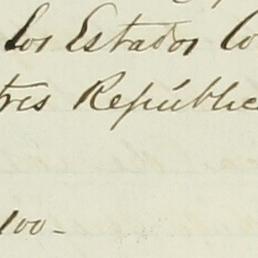 los Estados Co
tres Repúblic
100-